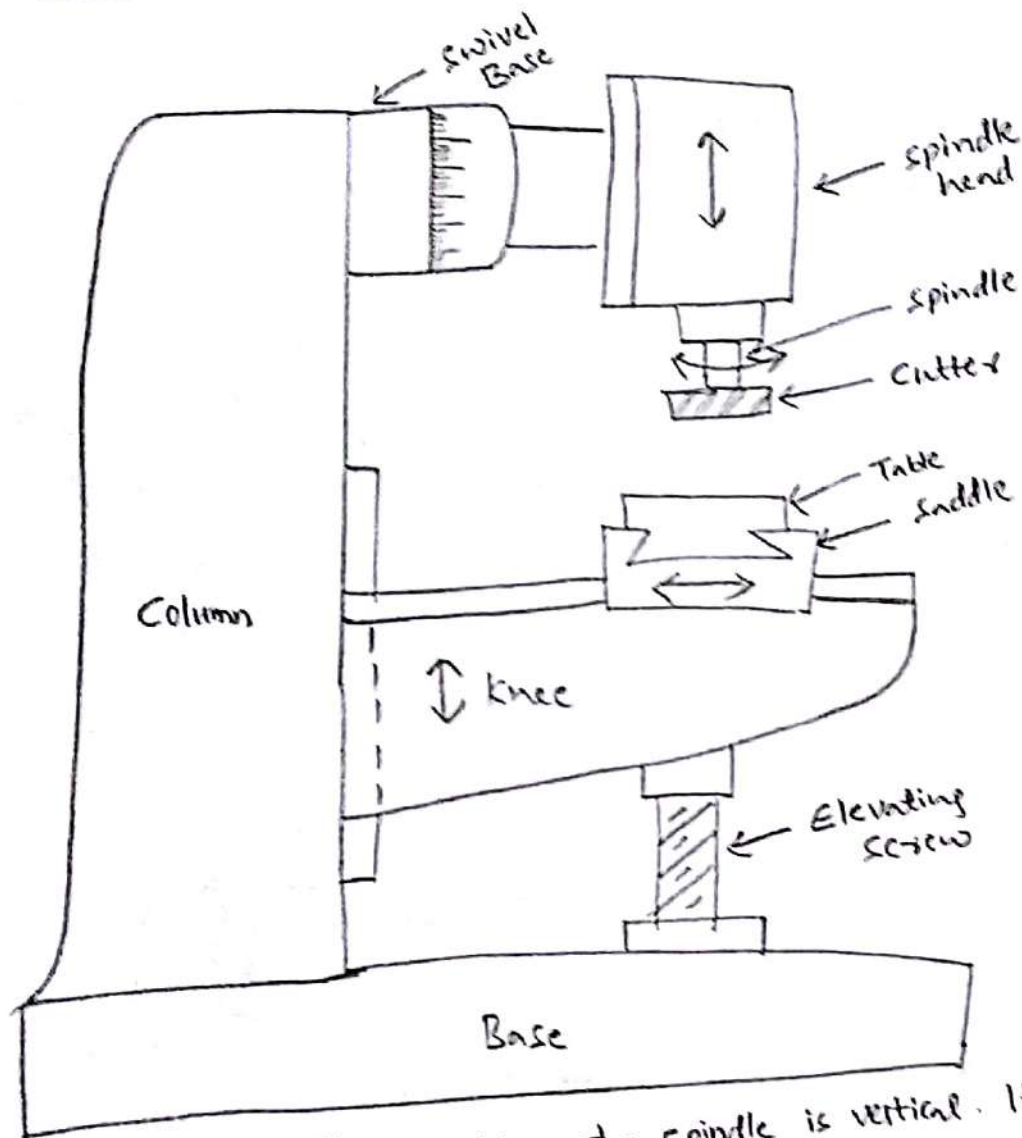 Swivel
Base
Spindle
head
Spindle
Cutter
Table
Saddle
Column
Knee
Elevating
Screw
Base
spindle is vertical.